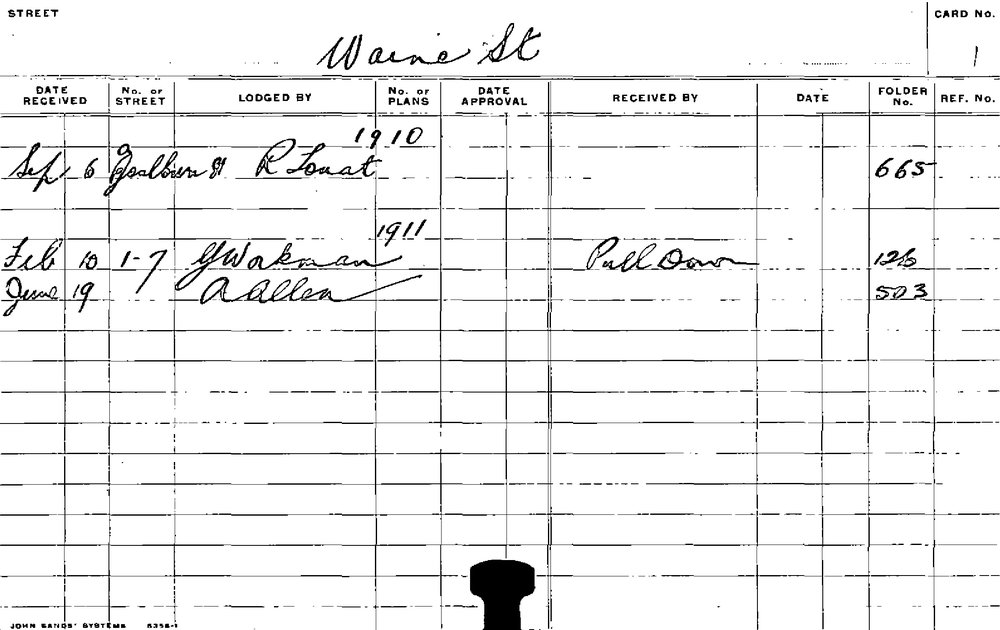 STREET
CARD No.
Waine St
1
DATE RECEIVED
No. OF STREET
LODGED BY
No. OF PLANS
DATE APPROVAL
RECEIVED BY
DATE
FOLDER No.
REF. No.
1910
Sep 6 Goulburn St R 665
1911
Feb 10 1-7 G Workman Pull Down 126
June 19 A Allen 503
JOHN SANDS' SYSTEMS